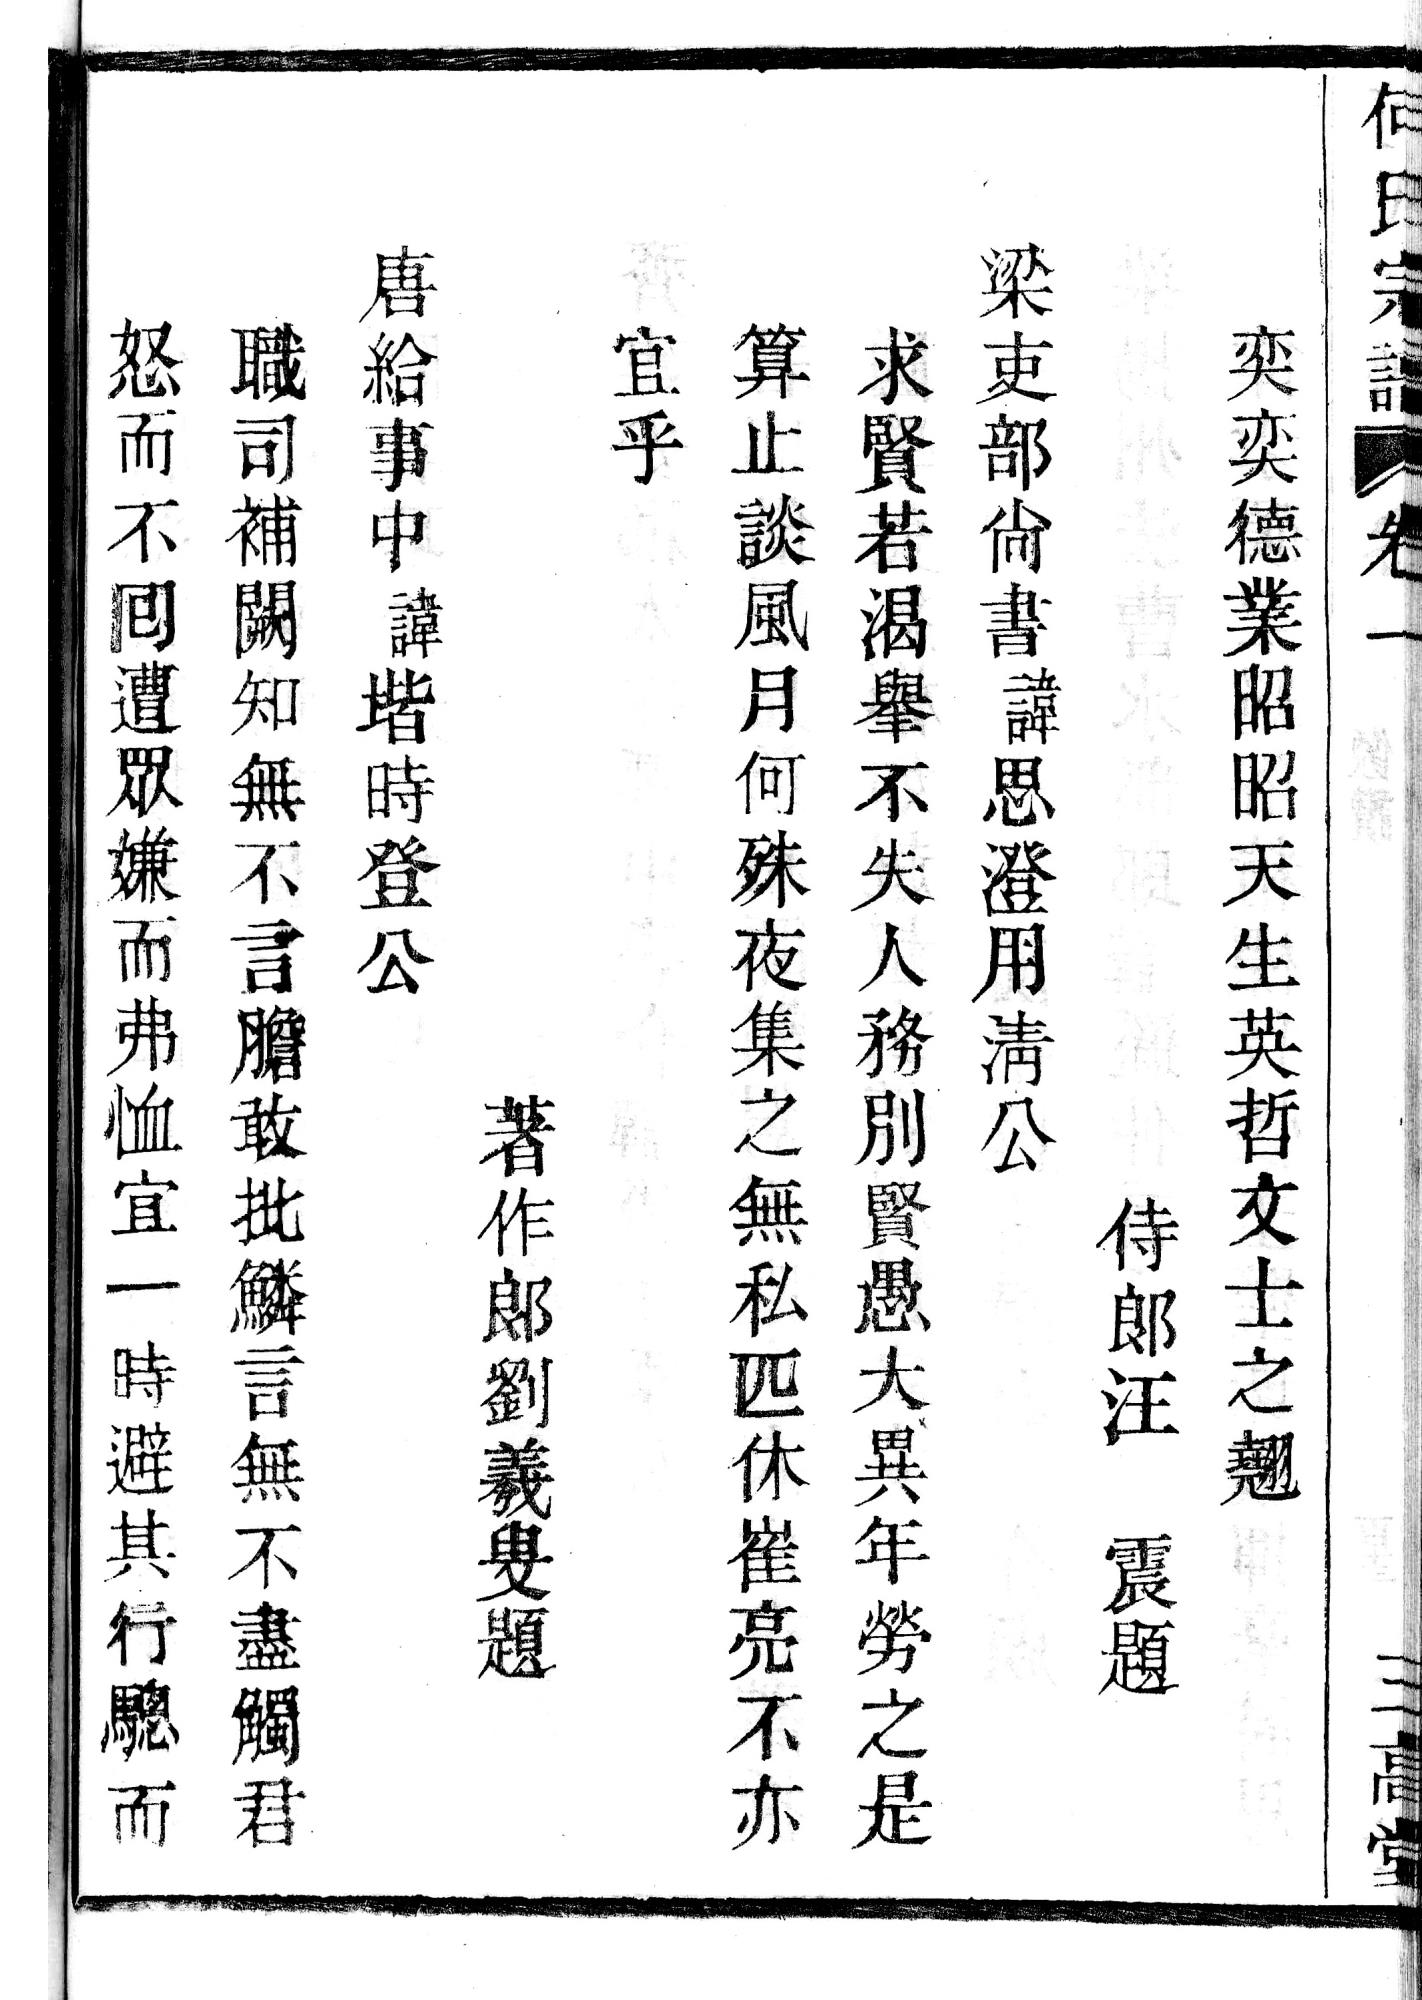 何氏宗譜 卷一 三高堂
奕奕德業昭昭天生英哲文士之翹
侍郎汪 震題
梁吏部尙書諱思澄用淸公
求賢若渴舉不失人務別賢愚大異年勞之是
算止談風月何殊夜集之無私匹休崔亮不亦
宜乎
著作郎劉羲叟題
唐給事中諱堦時登公
職司補闕知無不言膽敢批鱗言無不盡觸君
怒而不囘遭眾嫌而弗恤宜一時避其行驄而